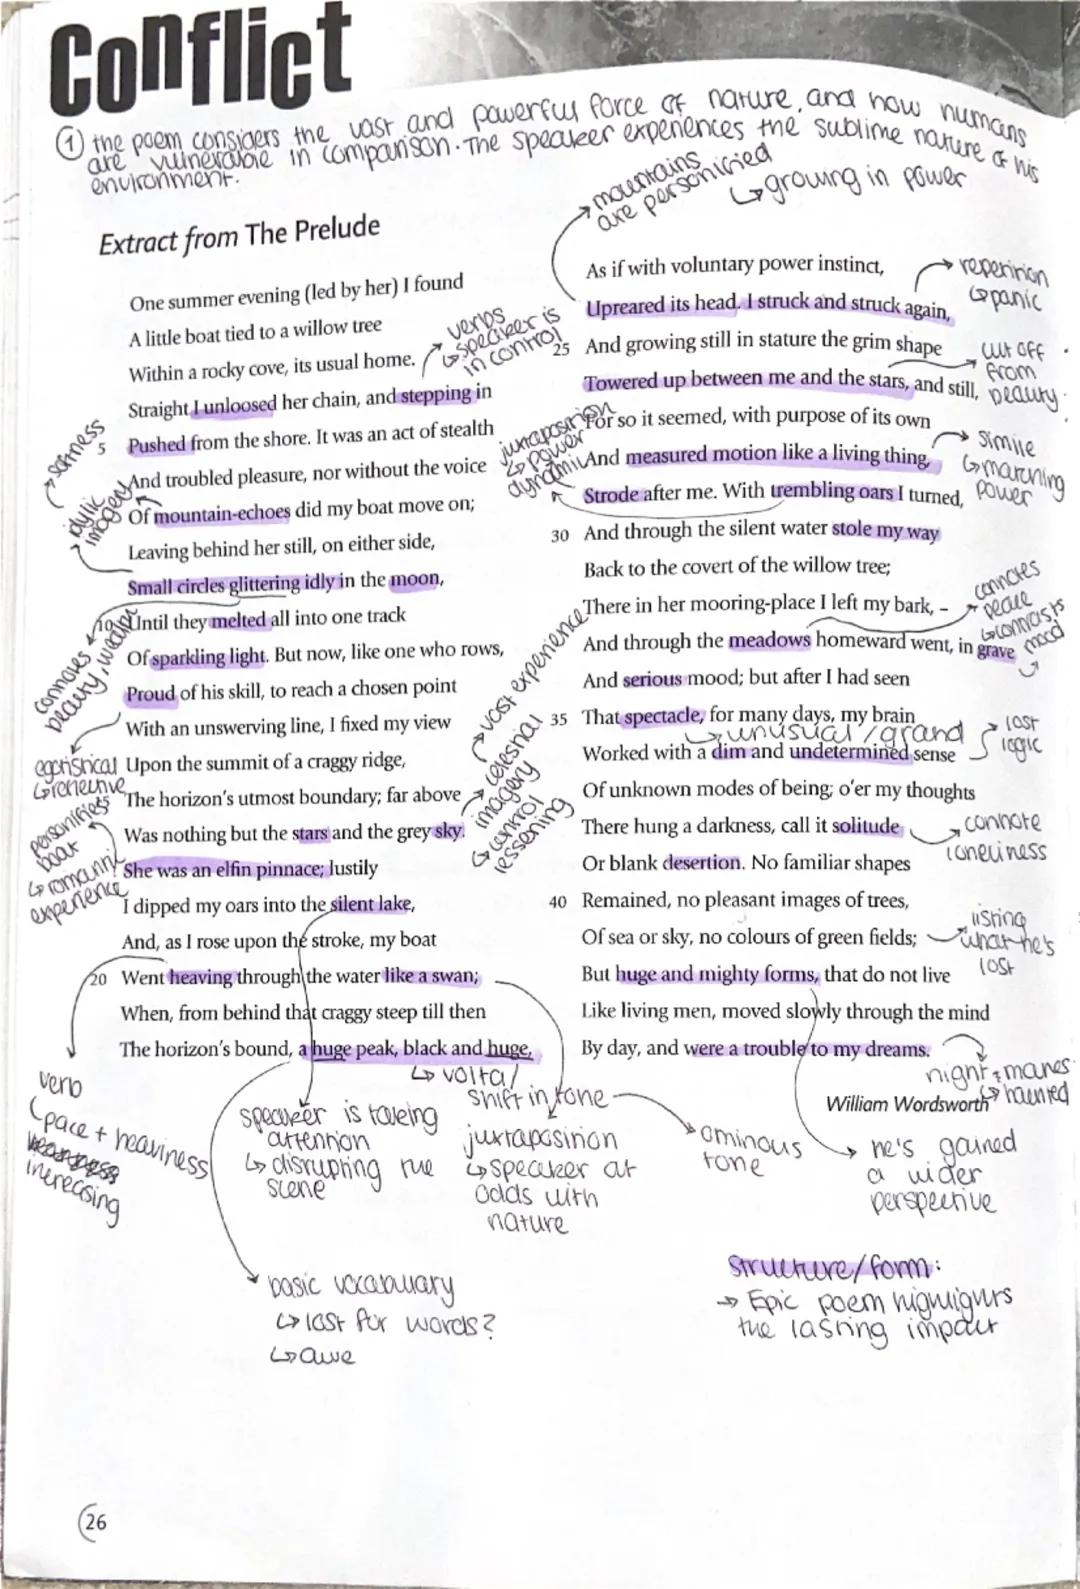 Conflict
① the poem considers the vast and powerful force of nature, and how humans
are vulnerable in comparison. The speaker experiences the sublime nature of his
environment.
mountains
are personified
↳ growing in power
Extract from The Prelude
One summer evening (led by her) I found
A little boat tied to a willow tree
Within a rocky cove, its usual home.
Straight I unloosed her chain, and stepping in
5 Pushed from the shore. It was an act of stealth
And troubled pleasure, nor without the voice
Of mountain-echoes did my boat move on;
Leaving behind her still, on either side,
Small circles glittering idly in the moon,
10 Until they melted all into one track
Of sparkling light. But now, like one who rows,
Proud of his skill, to reach a chosen point
With an unswerving line, I fixed my view
Upon the summit of a craggy ridge,
The horizon's utmost boundary; far above
Was nothing but the stars and the grey sky.
She was an elfin pinnace; lustily
I dipped my oars into the silent lake,
And, as I rose upon the stroke, my boat
20 Went heaving through the water like a swan;
When, from behind that craggy steep till then
The horizon's bound, a huge peak, black and huge,
verbs
↳ speaker is
in control
softness
idylic
imagery
connotes
beauty, wealth
egotistical
↳ reflective
personifies
boat
↳ romantic
experience
vast experience
celestial
imagery
↳ control
lessening
As if with voluntary power instinct,
Upreared its head. I struck and struck again,
25 And growing still in stature the grim shape
Towered up between me and the stars, and still,
For so it seemed, with purpose of its own
And measured motion like a living thing,
Strode after me. With trembling oars I turned,
30 And through the silent water stole my way
Back to the covert of the willow tree;
There in her mooring-place I left my bark, –
And through the meadows homeward went, in grave
And serious mood; but after I had seen
35 That spectacle, for many days, my brain
Worked with a dim and undetermined sense
Of unknown modes of being; o'er my thoughts
There hung a darkness, call it solitude
Or blank desertion. No familiar shapes
40 Remained, no pleasant images of trees,
Of sea or sky, no colours of green fields;
But huge and mighty forms, that do not live
Like living men, moved slowly through the mind
By day, and were a trouble to my dreams.
William Wordsworth
repetition
↳ panic
cut off
from
beauty
juxtaposition
↳ power
dynamic
simile
↳ marching
power
connotes
peace
↳ contrasts
mood
↳ unusual/grand
lost
logic
connote
loneliness
listing
what he's
lost
nightmares
↳ haunted
verb
↳ pace + heaviness
increasing
speaker is taking
attention
↳ disrupting the
scene
↳ volta/
shift in tone
juxtaposition
↳ speaker at
odds with
nature
ominous
tone
he's gained
a wider
perspective
basic vocabulary
↳ lost for words?
↳ awe
structure/form:
→ Epic poem highlights
the lasting impact
26